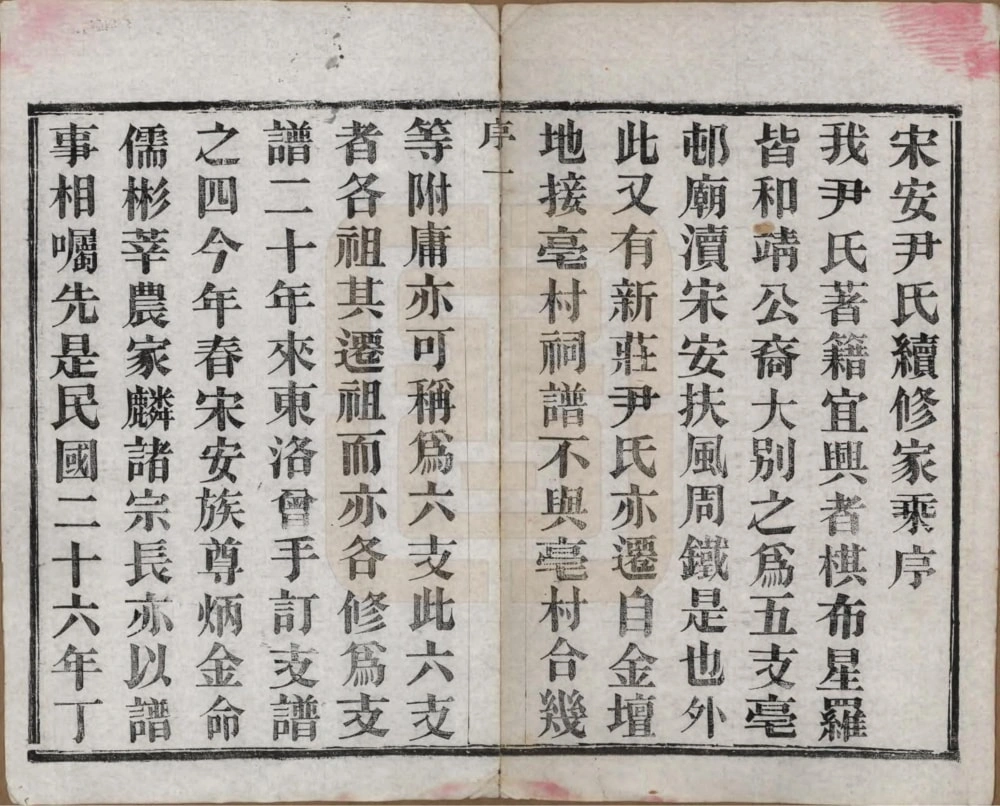 宋安尹氏續修家乘序
我尹氏著籍宜興者棋布星羅
皆和靖公裔大別之爲五支亳
邨廟瀆宋安扶風周鐵是也外
此又有新莊尹氏亦遷自金壇
地接亳村祠譜不與亳村合幾
序一
等附庸亦可稱爲六支此六支
者各祖其遷祖而亦各修爲支
譜二十年來東洛曾手訂支譜
之四今年春宋安族尊炳金命
儒彬莘農家麟諸宗長亦以譜
事相囑先是民國二十六年丁